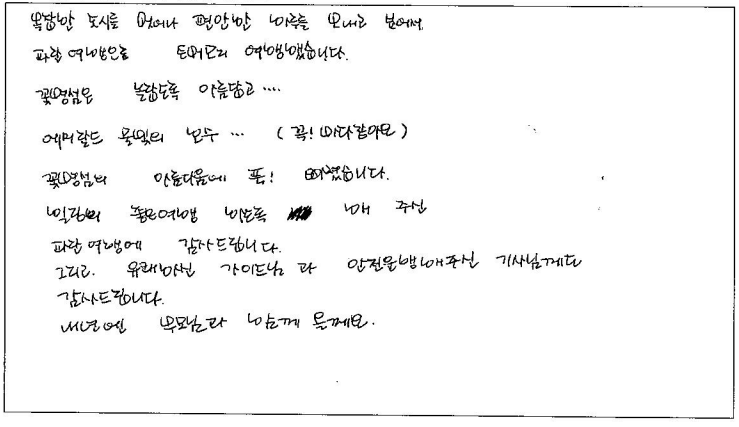 복잡한 도시를 벗어나 편안한 하루를 보내고 싶어서
파란여행으로 토버모리 여행했습니다.
꽃병섬은 놀랍도록 아름답고 ....
에머랄드 물빛의 호수 ... ( 꼭! 바다같아요 )
꽃병섬의 아름다움에 푹! 빠졌습니다.
좋은여행 하도록 해 주신
파란여행에 감사드립니다.
그리고. 유쾌하신 가이드님 과 안전운행해주신 기사님께도
감사드립니다.
내년엔 부모님과 함께 올께요.